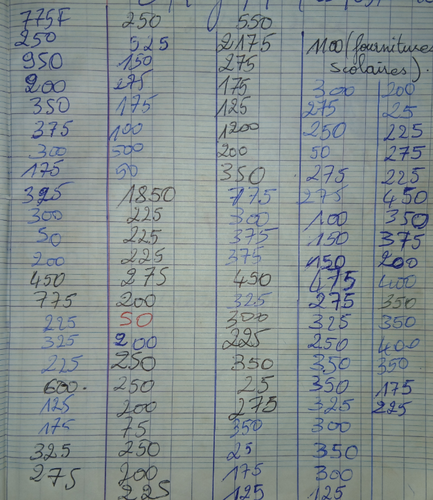 775F 250 550
250 525 2175 1100 (fournitures
950 150 275 scolaires).
200 275 175 300 200
350 175 125 275 25
375 100 1200 250 225
300 500 200 50 275
175 50 350 275 225
325 1850 775 275 450
300 225 300 100 350
50 225 375 150 375
200 225 375 150 200
450 275 450 475 400
775 200 325 275 350
225 50 300 325 350
325 200 225 250 400
225 250 350 350 350
600. 250 25 350 175
125 200 275 325 225
175 75 350 300
325 250 25 350
275 200 175 300
225 125 125